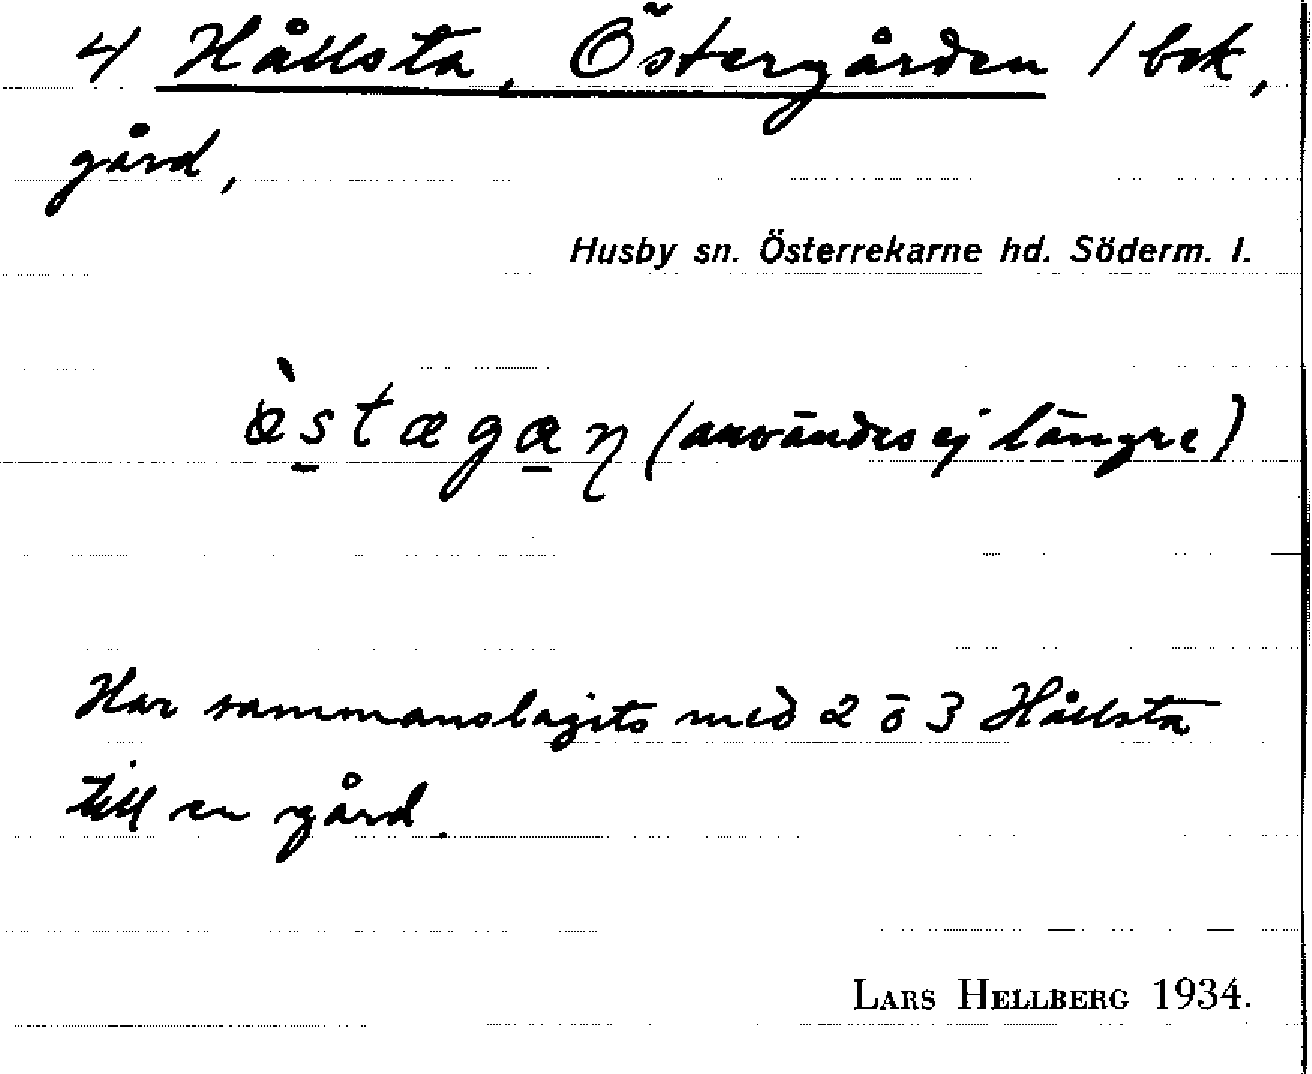 4 Hållsta, Östergården / bek,
gård,
Husby sn. Österrekarne hd. Söderm. l.
(användes ej längre)
Har sammanslagits med 2 o 3 Hållsta
till en gård.
LARS HELLBERG 1934.